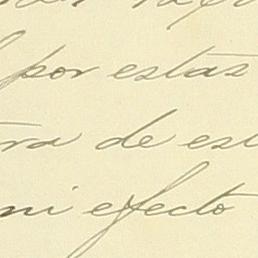 por estas
ra de est
ni efecto